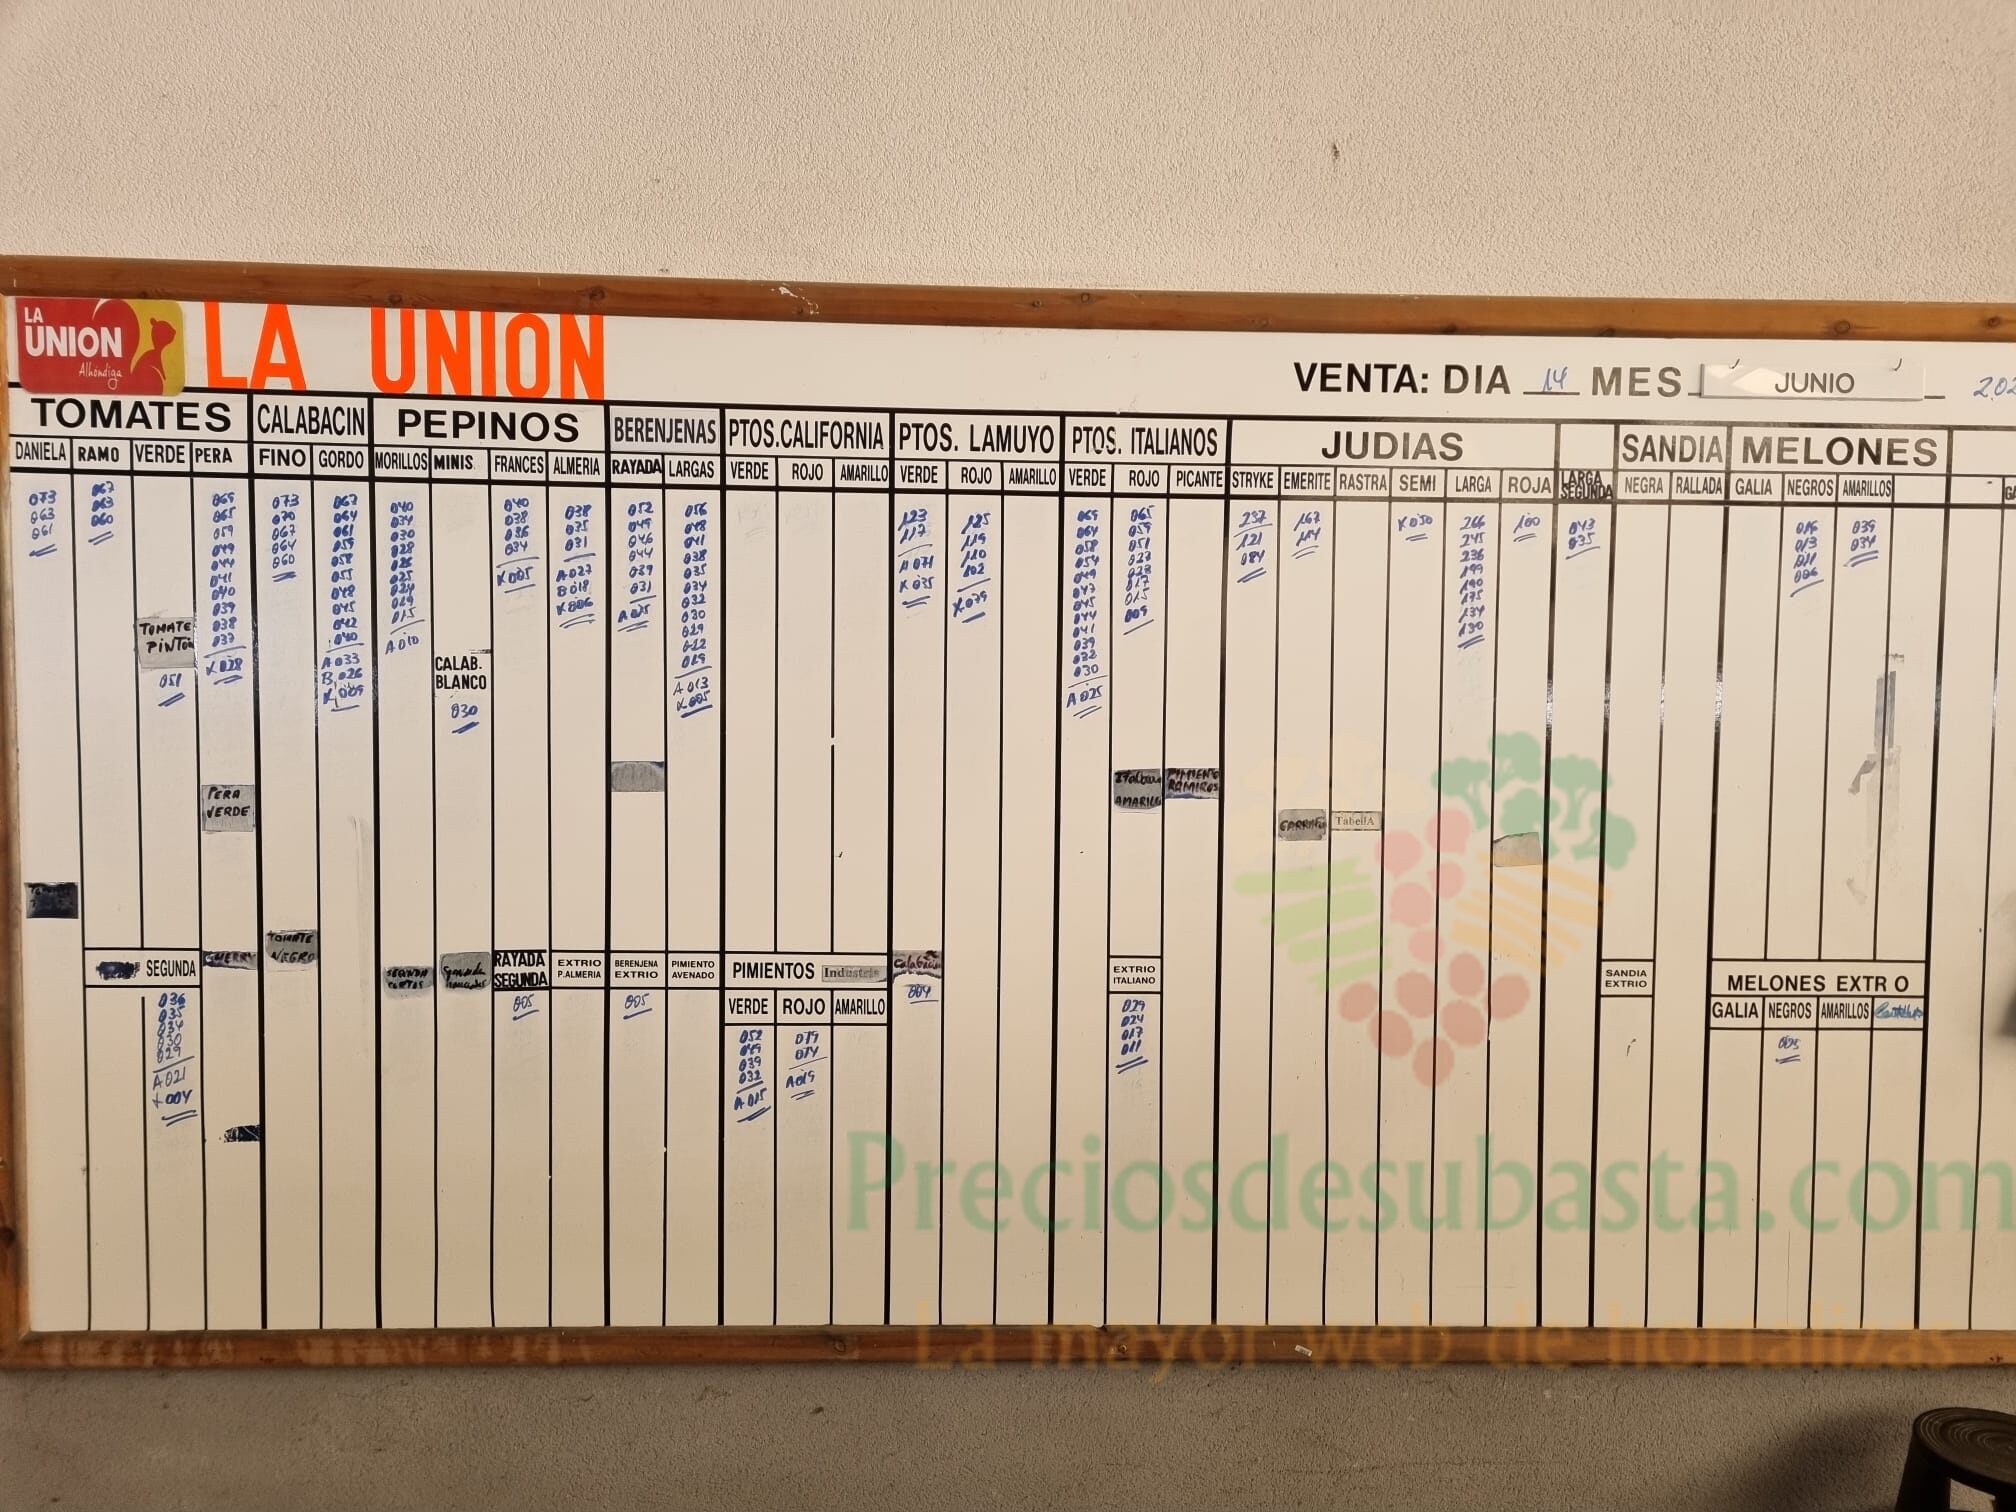 LA
UNION
Alhóndiga
LA UNION
VENTA: DIA 14 MES JUNIO 202
TOMATES CALABACIN PEPINOS BERENJENAS PTOS.CALIFORNIA PTOS. LAMUYO PTOS. ITALIANOS JUDIAS SANDIA MELONES
DANIELA RAMO VERDE PERA FINO GORDO MORILLOS MINIS. FRANCES ALMERIA RAYADA LARGAS VERDE ROJO AMARILLO VERDE ROJO AMARILLO VERDE ROJO PICANTE STRYKE EMERITE RASTRA SEMI LARGA ROJA LARGA SEGUNDA NEGRA RALLADA GALIA NEGROS AMARILLOS
073
063
061
067
063
060
TOMATE
PINTON
051
069
065
059
049
044
041
040
039
038
037
K 028
PERA
VERDE
073
070
067
064
060
067
064
061
059
058
055
048
045
042
040
A 033
B 026
K 009
040
034
030
028
026
025
024
019
015
A 010
CALAB.
BLANCO
030
040
038
036
034
K 005
038
035
031
A 027
B 018
K 006
052
049
046
044
039
031
A 025
056
048
041
038
035
034
032
030
029
022
019
A 013
K 005
123
117
A 071
K 035
125
119
110
102
K 079
069
064
058
054
049
047
045
044
041
039
032
030
A 025
065
059
051
028
017
015
009
Italiano
AMARILLO
PIMIENTO
RAMIROS
237
121
084
167
154
GARRAFON
TabellA
K 050
266
245
236
199
190
175
134
130
100
043
035
016
013
011
006
039
034
SEGUNDA
036
035
034
030
029
A 021
K 004
CHERRY
TOMATE
NEGRO
SEGUNDA
CORTOS
Segunda
RAYADA
SEGUNDA
005
EXTRIO
P.ALMERIA
BERENJENA
EXTRIO
005
PIMIENTO
AVENADO
PIMIENTOS Industria
VERDE ROJO AMARILLO
052
049
039
032
A 015
079
074
A 019
Calabacin
004
EXTRIO
ITALIANO
029
024
017
011
SANDIA
EXTRIO
MELONES EXTR O
GALIA NEGROS AMARILLOS
005
Preciosdesubasta.com
La mayor web de hortalizas